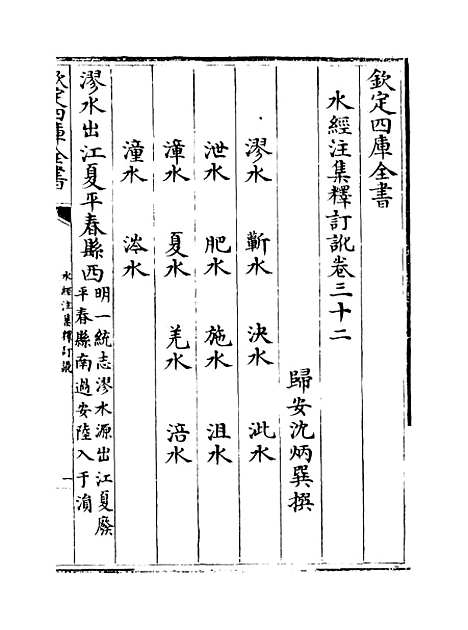 欽定四庫全書
水經注集釋訂訛卷三十二
歸安沈炳巽撰
漻水 蘄水 決水 沘水
泄水 肥水 施水 沮水
漳水 夏水 羌水 涪水
潼水 涔水
漻水出江夏平春縣西明一統志漻水源出江夏廢
平春縣南過安陸入于溳
欽定四庫全書
水經注集釋訂訛
一